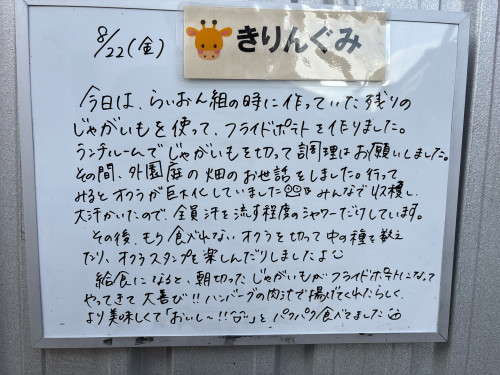 8/22(金)
きりんぐみ
今日は、らいおん組の時に作っていた残りの
じゃがいもを使って、フライドポテトを作りました。
ランチルームでじゃがいもを切って調理はお願いしました。
その間、外園庭の畑のお世話をしました。行って
みるとオクラが巨大化していました みんなで収穫し、
大汗かいたので、全員汗を流す程度のシャワーだけしています。
その後、もう食べれないオクラを切って中の種を数え
たり、オクラスタンプを楽しんだりしましたよ
給食になると、朝切ったじゃがいもがフライドポテトになって
やってきて大喜び!!ハンバーグの肉汁で揚げてくれたらしく、
より美味しくて「おいし〜!!」とパクパク食べてました